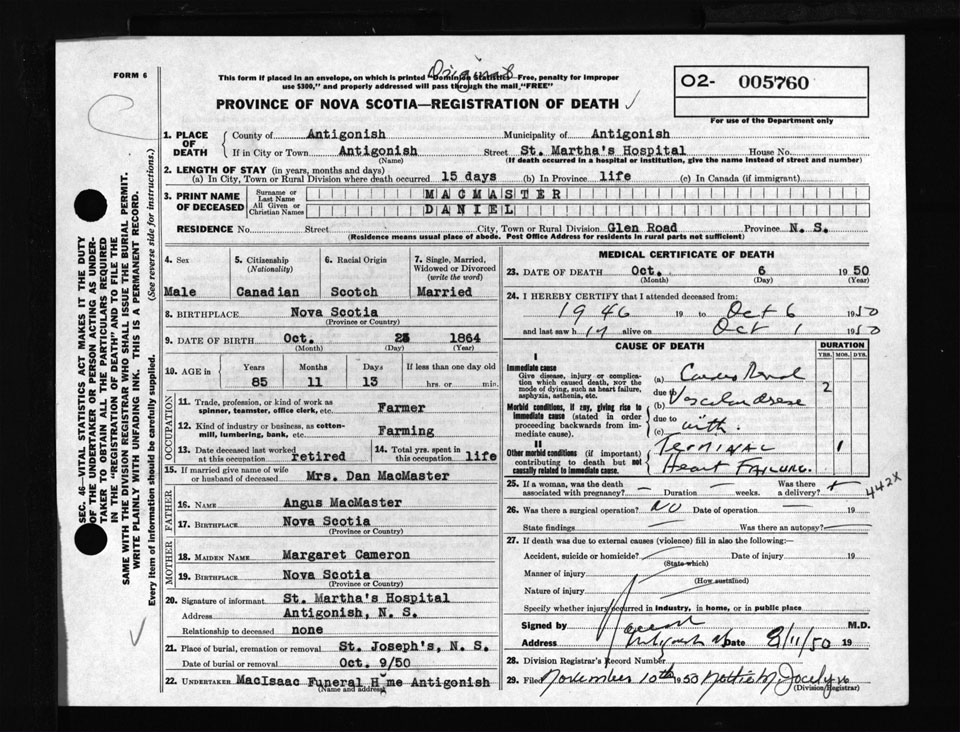 FORM 6
Original
This form if placed in an envelope, on which is printed "Dominion Statistics—Free, penalty for improper
use $300," and properly addressed will pass through the mail "FREE"
PROVINCE OF NOVA SCOTIA—REGISTRATION OF DEATH
02- 005760
For use of the Department only
1. PLACE OF DEATH County of Antigonish Municipality of Antigonish
If in City or Town Antigonish Street St. Martha's Hospital House No.
(Name) (If death occurred in a hospital or institution, give the name instead of street and number)
2. LENGTH OF STAY (in years, months and days)
(a) In City, Town or Rural Division where death occurred 15 days (b) In Province life (c) In Canada (if immigrant)
3. PRINT NAME OF DECEASED Surname or Last Name MACMASTER
All Given or Christian Names DANIEL
RESIDENCE No. Street City, Town or Rural Division Glen Road Province N. S.
(Residence means usual place of abode. Post Office Address for residents in rural parts not sufficient)
4. Sex 5. Citizenship (Nationality) 6. Racial Origin 7. Single, Married, Widowed or Divorced (write the word)
Male Canadian Scotch Married
8. BIRTHPLACE Nova Scotia
(Province or Country)
9. DATE OF BIRTH Oct. 23 1864
(Month) (Day) (Year)
10. AGE in Years Months Days If less than one day old
85 11 13 hrs. or min.
OCCUPATION
11. Trade, profession, or kind of work as spinner, teamster, office clerk, etc. Farmer
12. Kind of industry or business, as cotton-mill, lumbering, bank, etc. Farming
13. Date deceased last worked at this occupation retired 14. Total yrs. spent in this occupation life
15. If married give name of wife or husband of deceased Mrs. Dan MacMaster
FATHER
16. NAME Angus MacMaster
17. BIRTHPLACE Nova Scotia
(Province or Country)
MOTHER
18. MAIDEN NAME Margaret Cameron
19. BIRTHPLACE Nova Scotia
(Province or Country)
20. Signature of informant St. Martha's Hospital
Address Antigonish, N. S.
Relationship to deceased none
21. Place of burial, cremation or removal St. Joseph's, N. S.
Date of burial or removal Oct. 9/50
22. UNDERTAKER MacIsaac Funeral Home Antigonish
(Name and address)
MEDICAL CERTIFICATE OF DEATH
23. DATE OF DEATH Oct. 6 1950
(Month) (Day) (Year)
24. I HEREBY CERTIFY that I attended deceased from:
1946 19 to Oct 6 1950
and last saw h alive on Oct 1 1950
CAUSE OF DEATH DURATION
YRS. MOS. DYS.
I
Immediate cause
Give disease, injury or complication which caused death, NOT the mode of dying, such as heart failure, asphyxia, asthenia, etc.
(a) Cardio Renal 2
due to
Morbid conditions, if any, giving rise to immediate cause (stated in order proceeding backwards from immediate cause).
(b) Vascular disease
due to
(c) with.
II
Other morbid conditions (if important) contributing to death but not causally related to immediate cause.
Terminal 1
Heart Failure.
25. If a woman, was the death associated with pregnancy? — Duration — weeks. Was there a delivery?
442X
26. Was there a surgical operation? NO Date of operation — 19
State findings — Was there an autopsy? —
27. If death was due to external causes (violence) fill in also the following:—
Accident, suicide or homicide? Date of injury 19
(State which)
Manner of injury
(How sustained)
Nature of injury
Specify whether injury occurred in industry, in home, or in public place
Signed by M.D.
Address Antigonish NS Date 8/11/50 19
28. Division Registrar's Record Number
29. Filed November 10th 1950
(Division Registrar)
SEC. 46—VITAL STATISTICS ACT MAKES IT THE DUTY
OF THE UNDERTAKER OR PERSON ACTING AS UNDER-
TAKER TO OBTAIN ALL THE PARTICULARS REQUIRED
IN THE "REGISTRATION OF DEATH" AND TO FILE THE
SAME WITH THE DIVISION REGISTRAR WHO SHALL ISSUE THE BURIAL PERMIT.
WRITE PLAINLY WITH UNFADING INK. THIS IS A PERMANENT RECORD.
Every item of information should be carefully supplied. (See reverse side for instructions.)